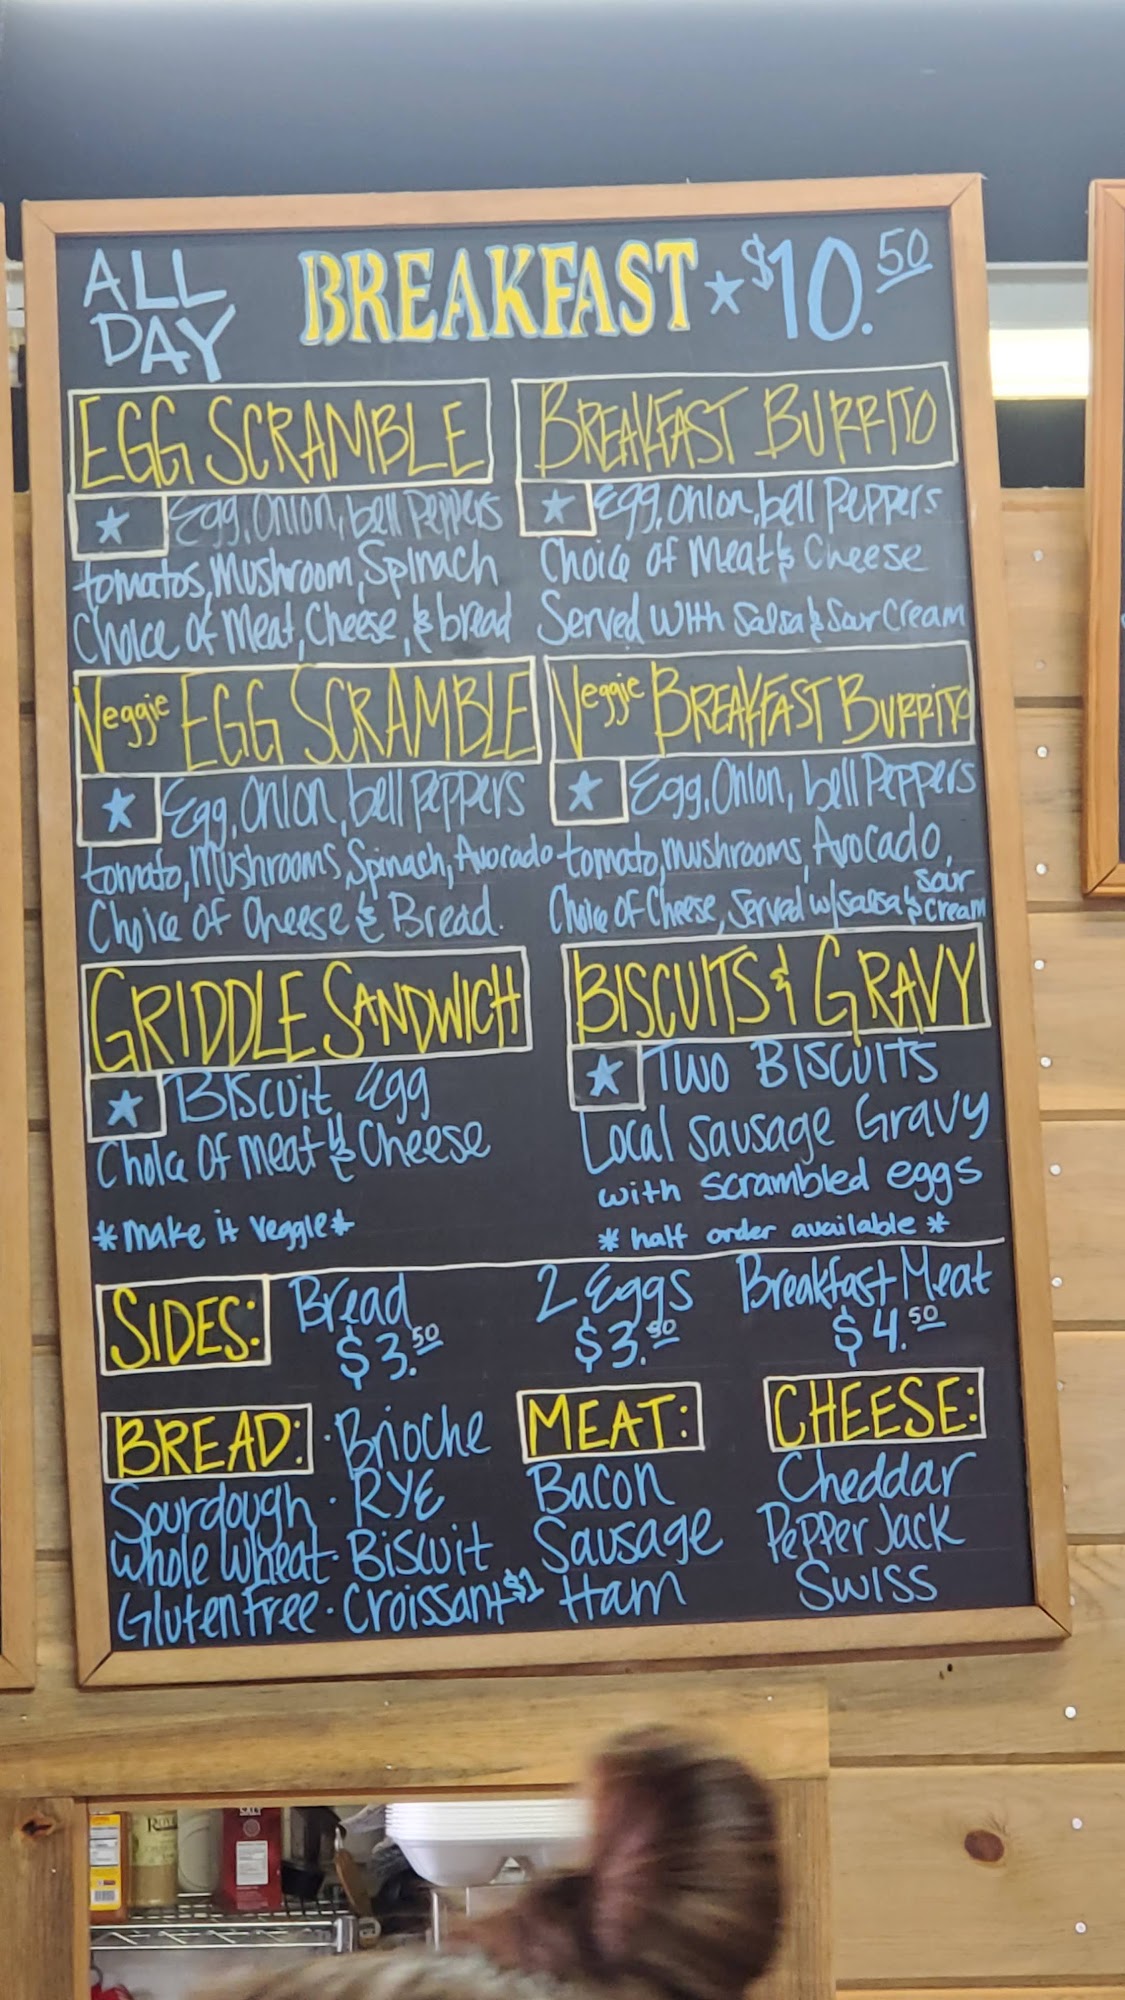 ALL DAY
BREAKFAST ★ $10.50
EGG SCRAMBLE
★ Egg, Onion, bell Peppers
tomatos, Mushroom, Spinach
Choice of Meat, Cheese, & bread
BREAKFAST BURRITO
★ Egg, onion, bell Peppers
Choice of Meat & Cheese
Served with Salsa & Sour Cream
Veggie EGG SCRAMBLE
★ Egg, Onion, bell Peppers
tomato, Mushrooms, Spinach, Avocado
Choice of Cheese & Bread.
Veggie BREAKFAST BURRITO
★ Egg, Onion, bell Peppers
tomato, mushrooms, Avocado,
Choice of Cheese, Served w/ salsa & sour cream
GRIDDLE SANDWICH
★ Biscuit, Egg
Choice of meat & Cheese
*make it veggie*
BISCUITS & GRAVY
★ TWO BISCUITS
Local Sausage Gravy
with scrambled eggs
* half order available *
SIDES:
Bread
$3.50
2 Eggs
$3.50
Breakfast Meat
$4.50
BREAD: · Brioche
Sourdough · RYE
Whole Wheat · Biscuit
Gluten Free · Croissant $1
MEAT:
Bacon
Sausage
Ham
CHEESE:
Cheddar
Pepper Jack
Swiss
SALT